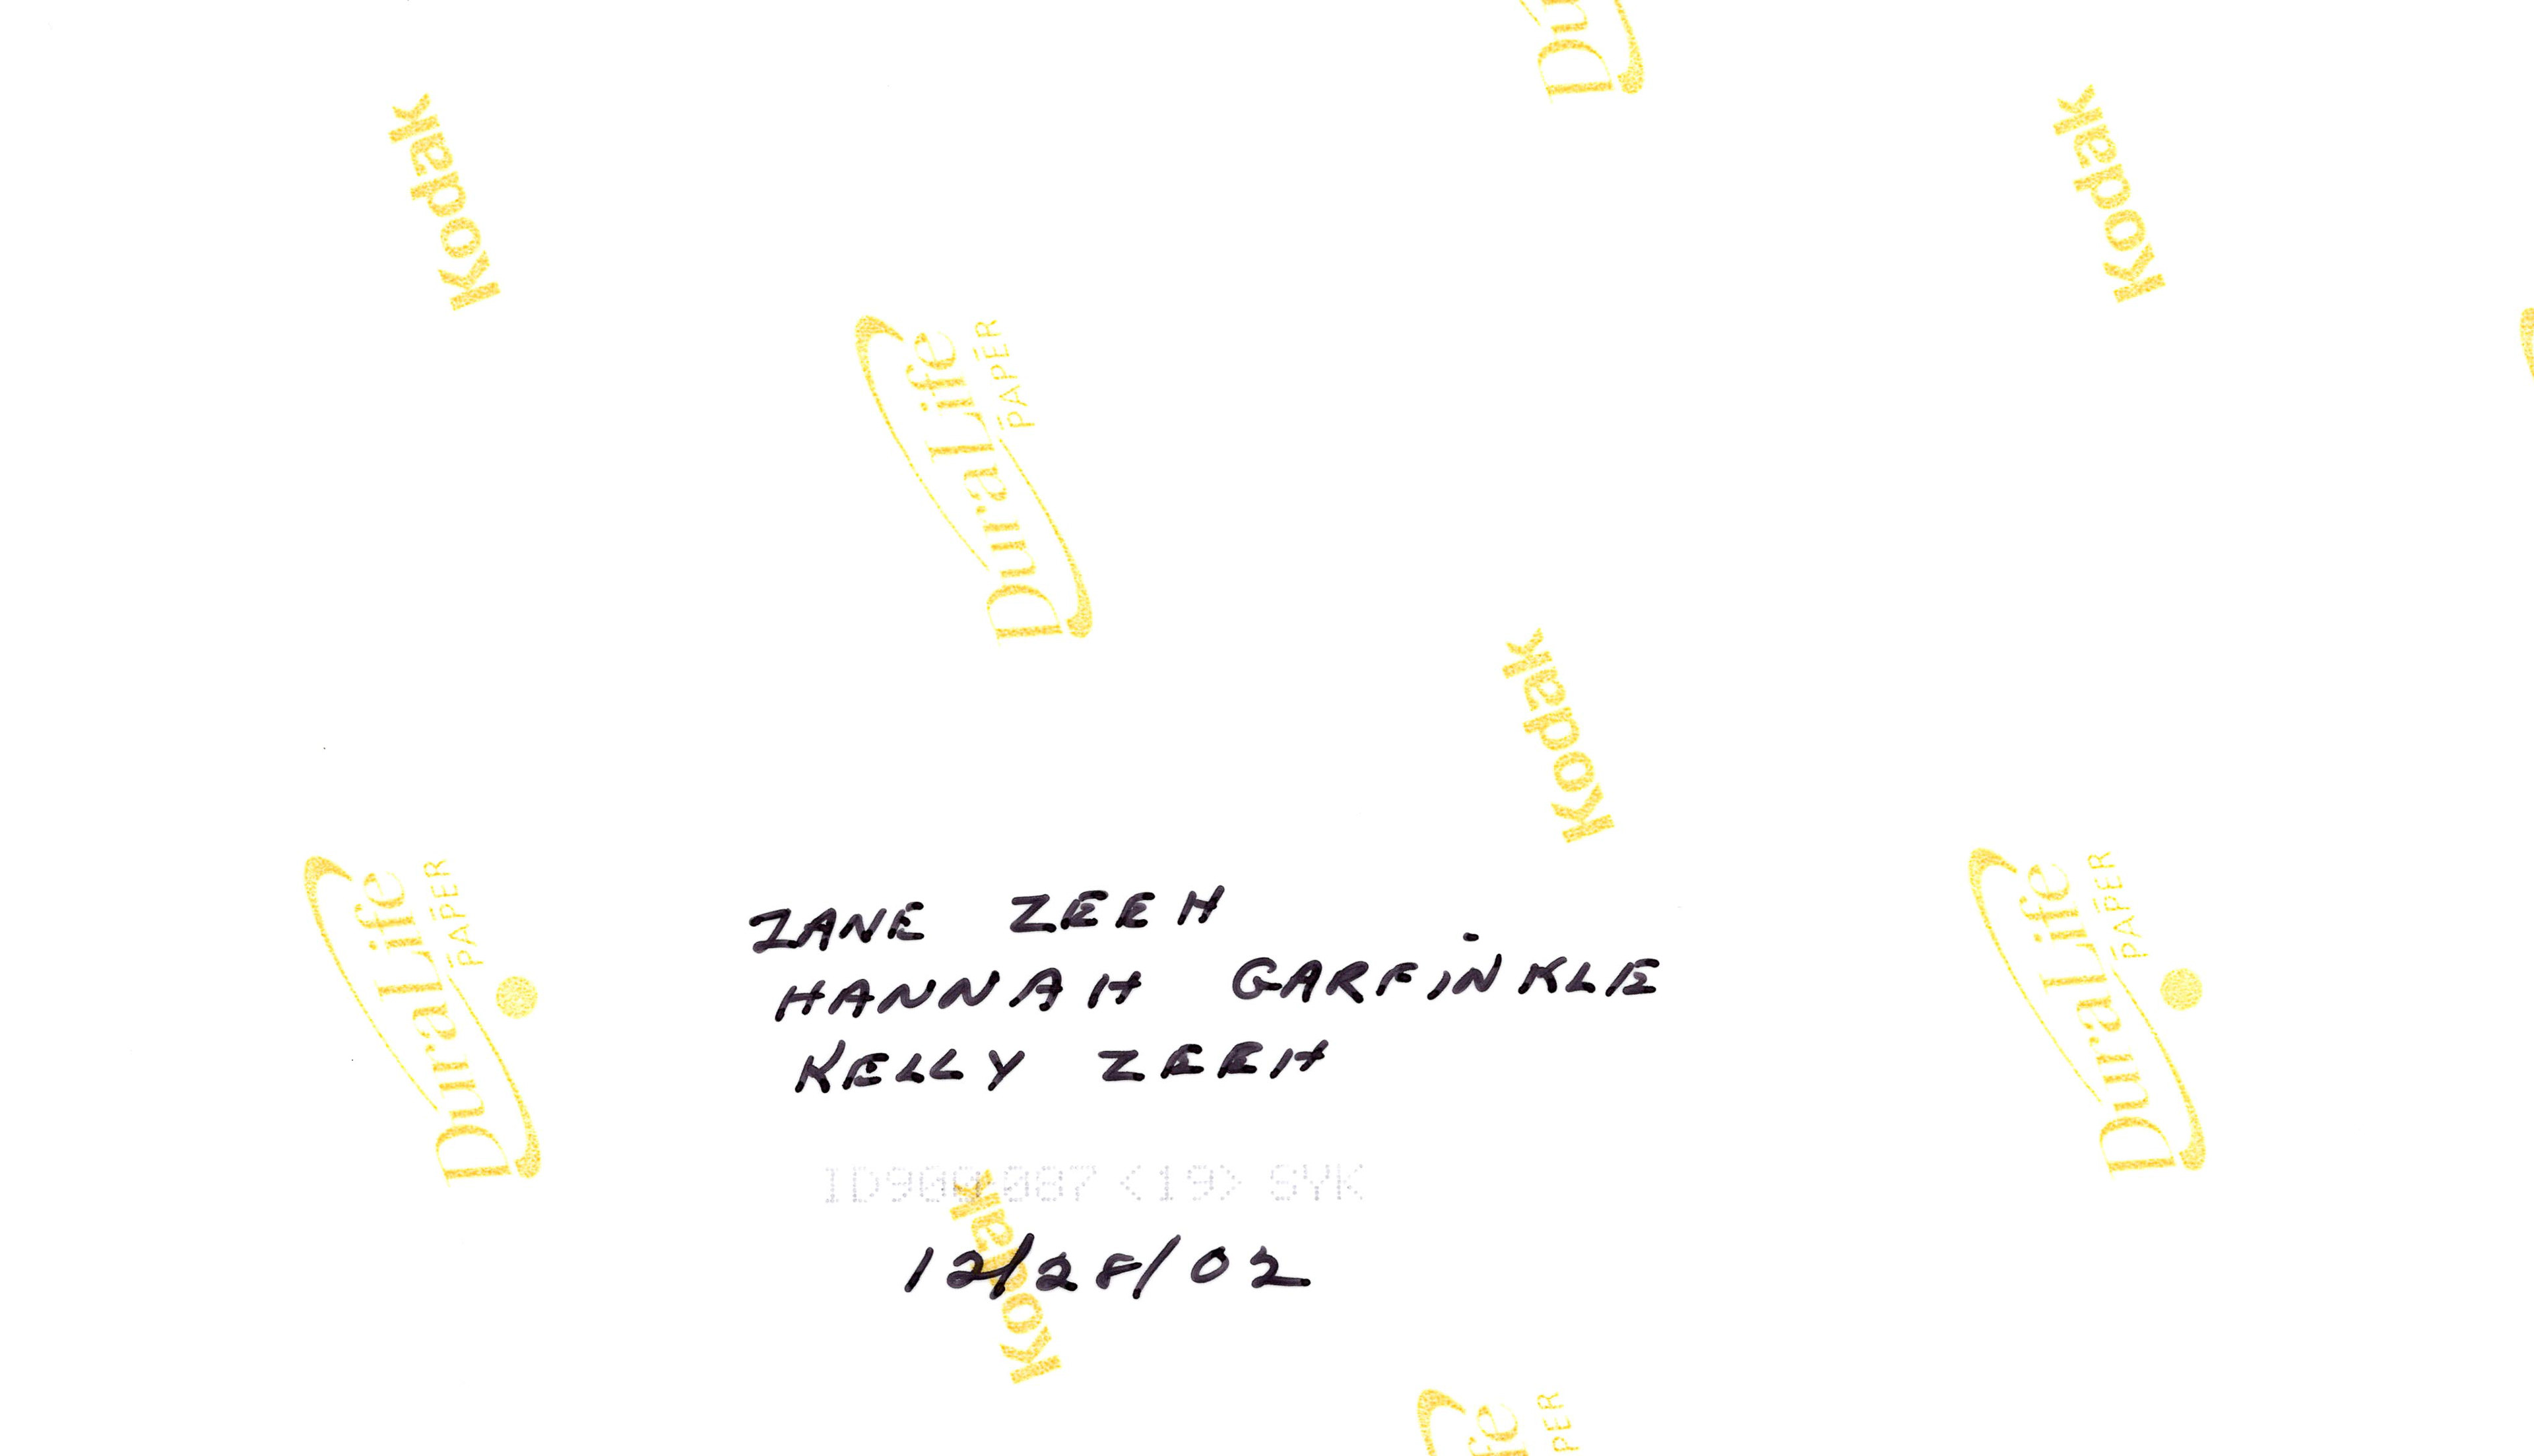 Du
Kodak
Kodak
DuraLife
PAPER
Kodak
ZANE ZEEH
HANNAH GARFINKLE
KELLY ZEEH
DuraLife
PAPER
DuraLife
PAPER
<19> SYK
12/28/02
Kodak
fe
PER